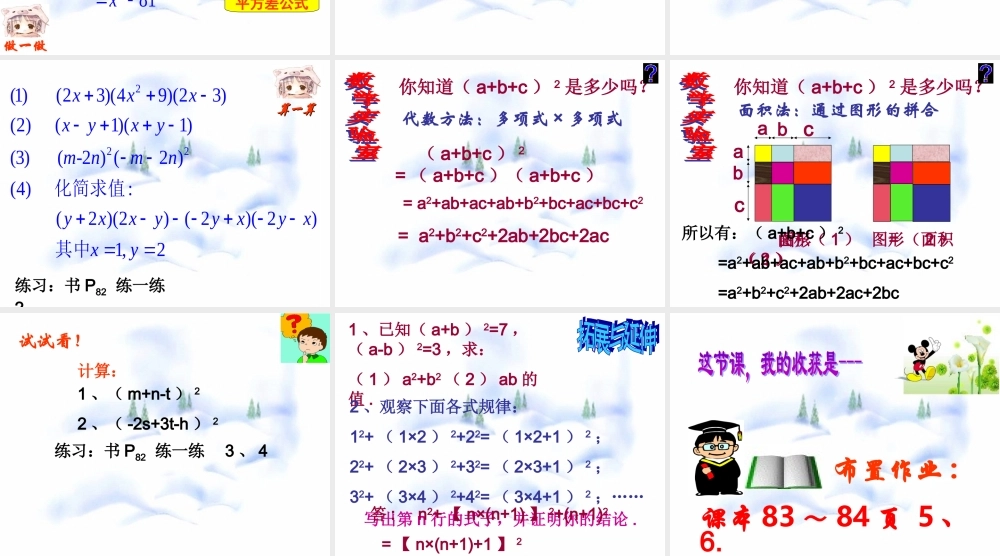 = x² − 81
平方差公式
做一做
(1) (2x+3)(4x²+9)(2x−3)
(2) (x−y+1)(x+y−1)
(3) (m-2n)²(−m−2n)²
(4) 化简求值:
(y+2x)(2x−y)−(−2y+x)(−2y−x)
其中x=1,y=2
算一算
练习：书 P82 练一练
数学实验室
?
你知道（ a+b+c ） ² 是多少吗？
代数方法：多项式 × 多项式
（ a+b+c ） ²
= （ a+b+c ）（ a+b+c ）
= a²+ab+ac+ab+b²+bc+ac+bc+c²
= a²+b²+c²+2ab+2bc+2ac
数学实验室
?
你知道（ a+b+c ） ² 是多少吗？
面积法：通过图形的拼合
a b c
a
b
c
所以有：（ a+b+c ） ²
=a²+ab+ac+ab+b²+bc+ac+bc+c²
=a²+b²+c²+2ab+2ac+2bc
试试看！
?
计算：
1 、（ m+n-t ） ²
2 、（ -2s+3t-h ） ²
练习：书 P82 练一练 3 、 4
拓展与延伸
1 、已知（ a+b ） ²=7 ，
（ a-b ） ²=3 ，求：
（ 1 ） a²+b² （ 2 ） ab 的
值 .
2 、观察下面各式规律：
1²+ （ 1×2 ） ²+2²= （ 1×2+1 ） ² ；
2²+ （ 2×3 ） ²+3²= （ 2×3+1 ） ² ；
3²+ （ 3×4 ） ²+4²= （ 3×4+1 ） ² ；……
写出第 n 行的式子，并证明你的结论 .
答： n²+ 【 n×(n+1) 】 ²+(n+1)²
= 【 n×(n+1)+1 】 ²
这节课，我的收获是---
布置作业：
课本 83 ～ 84 页 5 、
6.